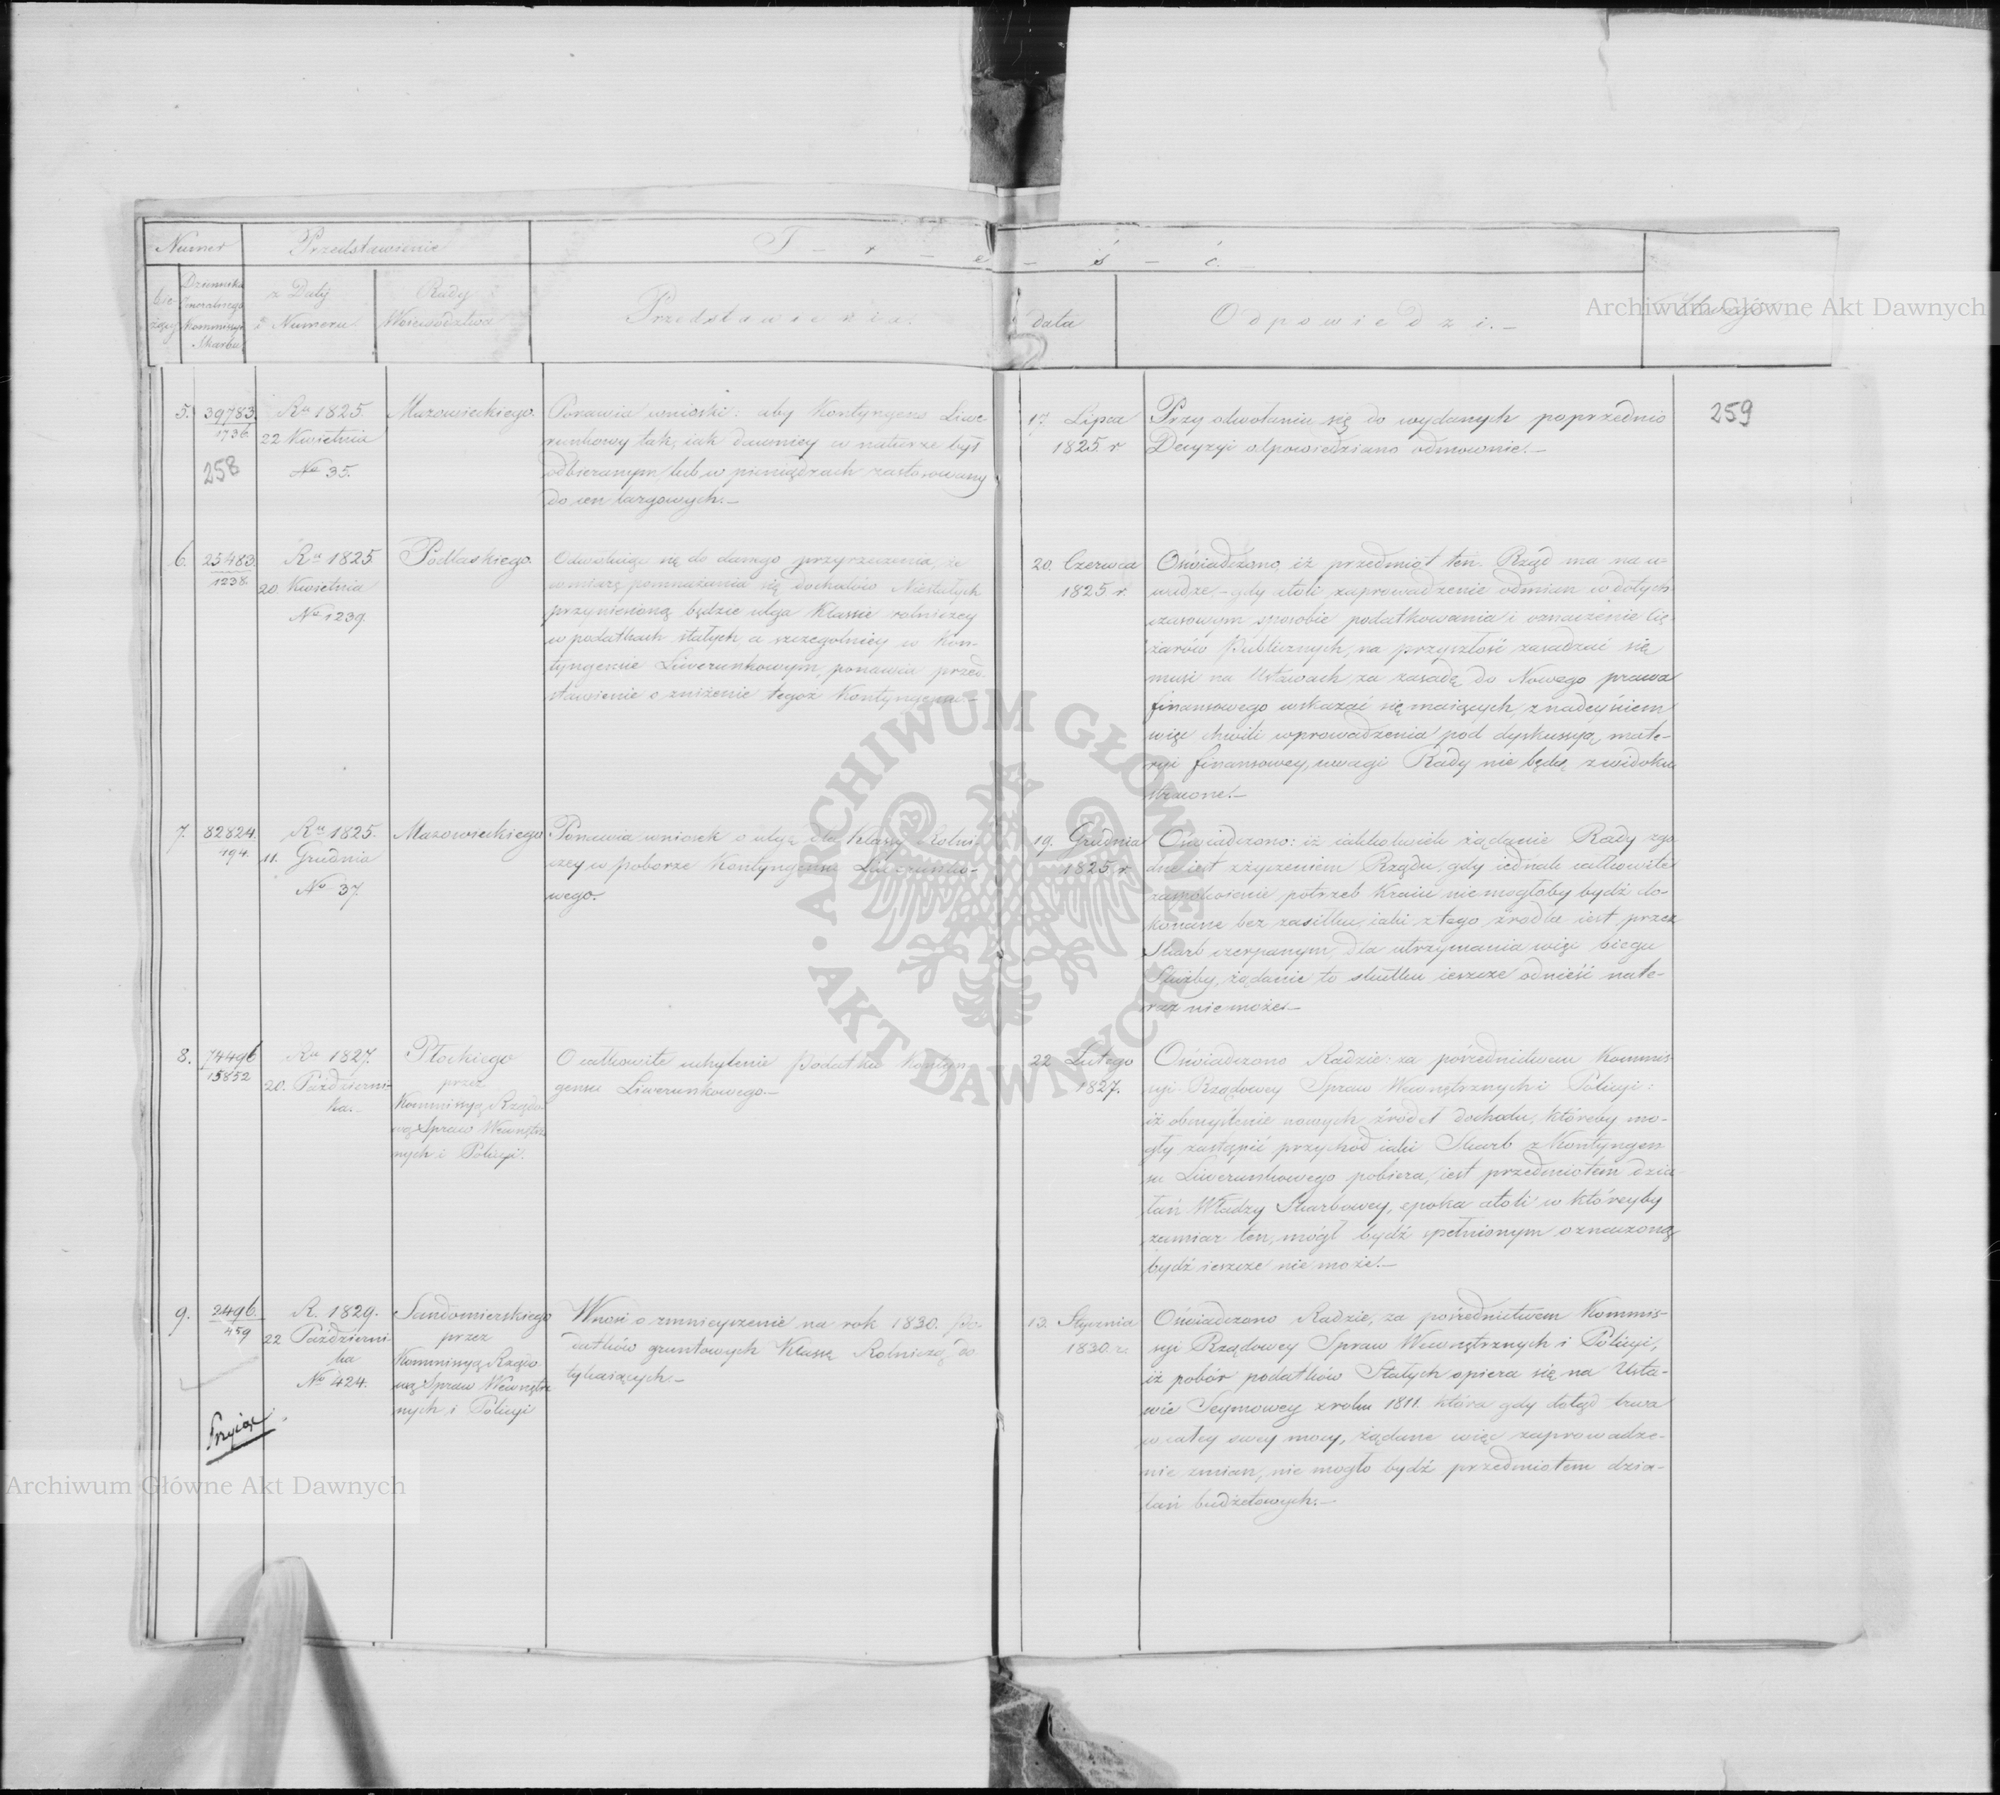 Numer
Przedstawienie
T - r - e - ś - ć. -
Bie-
żący
Dziennika
Generalnego
Kommissyi
Skarbu
z Daty
i Numeru
Rady
Województwa
Przedstawienia.
data
Odpowiedzi. -
Uwagi
Archiwum Główne Akt Dawnych
5.
39783.
1736.
258
Ru 1825.
22 Kwietnia
No 35.
Mazowieckiego.
Ponawia wnioski: aby Kontyngens Liwe-
runkowy tak, iak dawniey w naturze był
odbieranym, lub w pieniądzach zastosowany
do cen targowych. -
17. Lipca
1825 r
Przy odwołaniu się do wydanych poprzednio
Decyzyi odpowiedziano odmownie. -
259
6.
25483.
1238.
Ru 1825
20. Kwietnia
No 1239.
Podlaskiego.
Odwołuiąc się do danego przyrzeczenia, że
w miarę pomnażania się dochodów Niestałych
przyniesioną będzie ulga Klassie rolniczey
w podatkach stałych, a szczegolniey w Kon-
tyngensie Liwerunkowym, ponawia przed-
stawienie o zniżenie tegoż Kontyngensu. -
20. Czerwca
1825 r.
Oświadczono, iż przedmiot ten Rząd ma na u-
wadze, - gdy atoli zaprowadzenie odmian w dotych-
czasowym sposobie podatkowania i oznaczenie Cię-
żarów Publicznych, na przyszłość zasadzać się
musi na Ustawach za zasadę do Nowego prawa
finansowego wskazać się maiących, z nadeyściem
więc chwili wprowadzenia pod dyskussyą mate-
ryi finansowey, uwagi Rady nie będą z widoku
stracone. -
7.
82824.
194.
Ru 1825.
11. Grudnia
No 37.
Mazowieckiego
Ponawia wniosek o ulgę dla Klassy Rolni-
czey w poborze Kontyngensu Liwerunko-
wego.
19. Grudnia
1825 r.
Oświadczono: iż iakkolwiek żądanie Rady zgo-
dne iest z życzeniem Rządu, gdy iednak całkowite
zaspokoienie potrzeb Kraiu nie mogłoby bydź do-
konane bez zasiłku, iaki z tego źrodła iest przez
Skarb czerpanym, dla utrzymania więc biegu
Służby, żądanie to skutku ieszcze odnieść na te-
raz nie może. -
8.
74496
15852
Ru 1827.
20. Październi-
ka. -
Płockiego
przez
Kommissyą Rządo-
wą Spraw Wewnętrz-
nych i Policyi.
O całkowite uchylenie podatku Kontyn-
gensu Liwerunkowego. -
22 Lutego
1827.
Oświadczono Radzie: za pośrednictwem Kommis-
syi Rządowey Spraw Wewnętrznych i Policyi:
iż obmyślenie nowych źródeł dochodu, któreby mo-
gły zastąpić przychód iaki Skarb z Kontyngen-
su Liwerunkowego pobiera, iest przedmiotem dzia-
łań Władzy Skarbowey, epoka atoli w któreyby
zamiar ten, mógł bydź spełnionym oznaczoną
bydź ieszcze nie może. -
9.
2496.
459
R. 1829.
22 Październi-
ka
No 424.
Przyiąć
Sandomierskiego
przez
Kommissyą Rządo-
wą Spraw Wewnętrz-
nych i Policyi
Wnosi o zmnieyszenie na rok 1830. po-
datków gruntowych Klassę Rolniczą do-
tykaiących -
13. Stycznia
1830. r.
Oświadczono Radzie, za pośrednictwem Kommis-
syi Rządowey Spraw Wewnętrznych i Policyi,
iż pobór podatków Stałych opiera się na Usta-
wie Seymowey z roku 1811. która gdy dotąd trwa
w całey swey mocy, żądane więc zaprowadze-
nie zmian, nie mogło bydź przedmiotem dzia-
łań budżetowych. -
ARCHIWUM GŁÓWNE
AKT DAWNYCH
Archiwum Główne Akt Dawnych